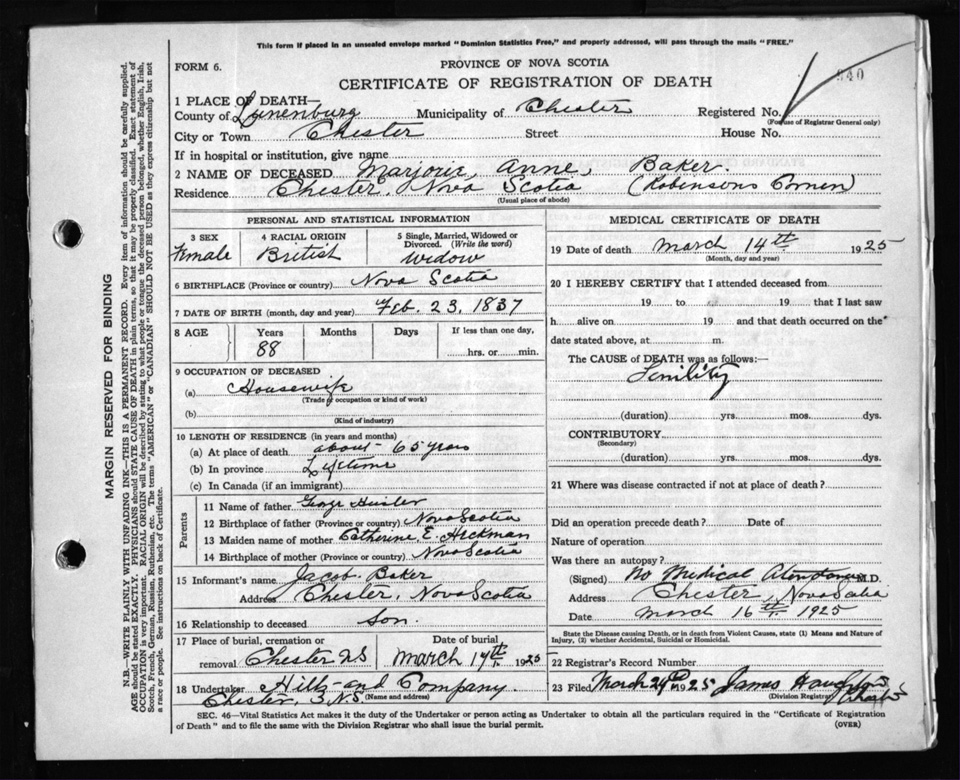 This form if placed in an unsealed envelope marked "Dominion Statistics Free," and properly addressed, will pass through the mails "FREE."
FORM 6.
PROVINCE OF NOVA SCOTIA
CERTIFICATE OF REGISTRATION OF DEATH
340
1 PLACE OF DEATH—
County of Lunenburg Municipality of Chester Registered No.
(For use of Registrar General only)
City or Town Chester Street House No.
If in hospital or institution, give name
2 NAME OF DECEASED Marjorie, Anne, Baker.
Residence Chester, Nova Scotia (Robinsons Corner)
(Usual place of abode)
PERSONAL AND STATISTICAL INFORMATION
3 SEX 4 RACIAL ORIGIN 5 Single, Married, Widowed or Divorced. (Write the word)
Female British widow
6 BIRTHPLACE (Province or country) Nova Scotia
7 DATE OF BIRTH (month, day and year) Feb. 23, 1837
8 AGE Years Months Days If less than one day,
88 hrs. or min.
9 OCCUPATION OF DECEASED
(a) Housewife
(Trade or occupation or kind of work)
(b)
(Kind of industry)
10 LENGTH OF RESIDENCE (in years and months)
(a) At place of death about 65 years
(b) In province Lifetime
(c) In Canada (if an immigrant)
Parents
11 Name of father George
12 Birthplace of father (Province or country) Nova Scotia
13 Maiden name of mother Catherine E.
14 Birthplace of mother (Province or country) Nova Scotia
15 Informant's name Jacob Baker
Address Chester, Nova Scotia
16 Relationship to deceased son.
17 Place of burial, cremation or removal Chester NS Date of burial March 17th, 1925
18 Undertaker Hiltz and Company.
Chester, N.S. (Name and address)
MEDICAL CERTIFICATE OF DEATH
19 Date of death March 14th 1925
(Month, day and year)
20 I HEREBY CERTIFY that I attended deceased from
19 to 19 that I last saw
h alive on 19 and that death occurred on the
date stated above, at m.
The CAUSE of DEATH was as follows:—
Senility
(duration) yrs. mos. dys.
CONTRIBUTORY
(Secondary)
(duration) yrs. mos. dys.
21 Where was disease contracted if not at place of death?
Did an operation precede death? Date of
Nature of operation
Was there an autopsy?
(Signed) No Medical M.D.
Address Chester, Nova Scotia
Date March 16th 1925
State the Disease causing Death, or in death from Violent Causes, state (1) Means and Nature of
Injury, (2) whether Accidental, Suicidal or Homicidal.
22 Registrar's Record Number
23 Filed March 1925 James
(Division Registrar)
SEC. 46—Vital Statistics Act makes it the duty of the Undertaker or person acting as Undertaker to obtain all the particulars required in the "Certificate of Registration
of Death" and to file the same with the Division Registrar who shall issue the burial permit.
(OVER)
MARGIN RESERVED FOR BINDING
N.B.—WRITE PLAINLY WITH UNFADING INK—THIS IS A PERMANENT RECORD. Every item of information should be carefully supplied.
AGE should be stated EXACTLY. PHYSICIANS should STATE CAUSE OF DEATH in plain terms, so that it may be properly classified. Exact statement of
OCCUPATION is very important. RACIAL ORIGIN will be described by stating to what people or tongue the deceased person belonged, whether English, Irish,
Scotch, French, German, Russian, Ruthenian, etc. The terms "AMERICAN" or "CANADIAN" SHOULD NOT BE USED as they express citizenship but not
a race or people. See instructions on back of Certificate.